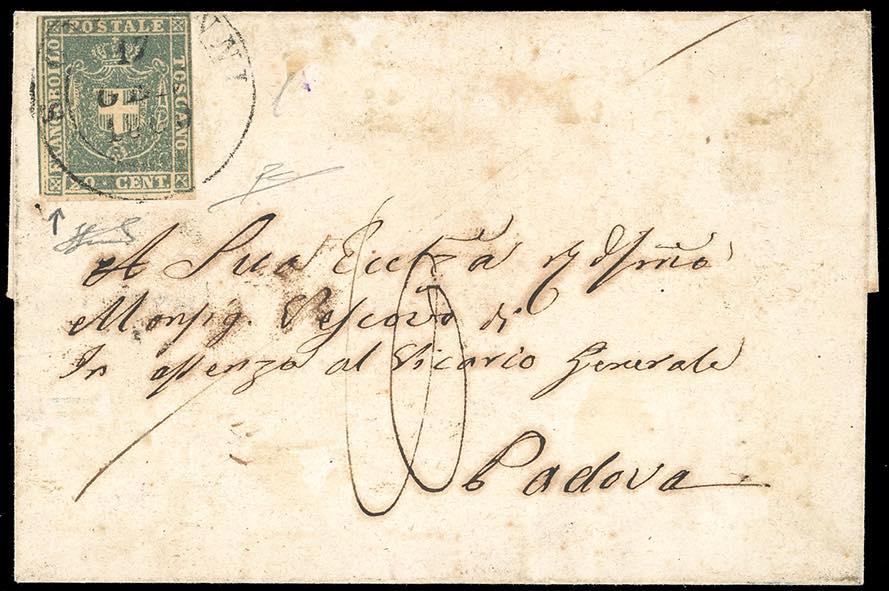 FRANCOBOLLO POSTALE TOSCANO
CENT.
17
A Sua Eccza
Monsig. Vescovo di
In assenza al Vicario Generale
Padova